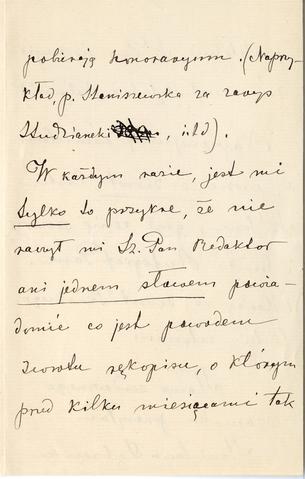 pobierają honoraryum. (Naprzy-
kład, p. Staniszewska za
Studzianeki, itd).
W każdym razie, jest mi
tylko to przykre, że nie
raczył mi Sz. Pan Redaktor
ani jednem słowem powia-
domić co jest powodem
zwrotu rękopisu, o którym
przed kilku miesiącami tak